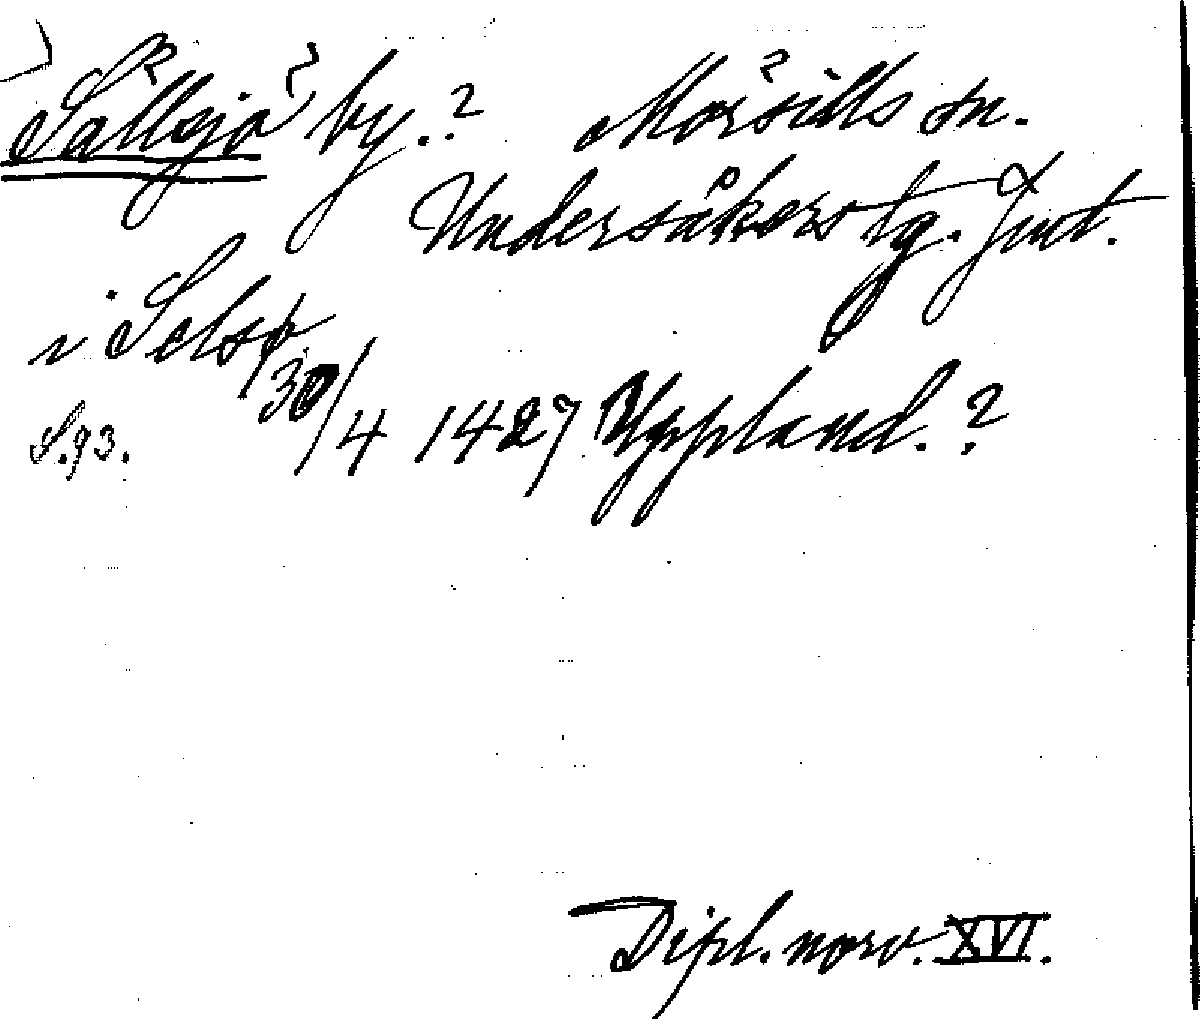 Sällsjö by.? Mörsills sn.
Undersåkers tg. Jmt.
i Selsø
S.93. 30/4 1427 Uppland.?
Dipl. norv. XVI.